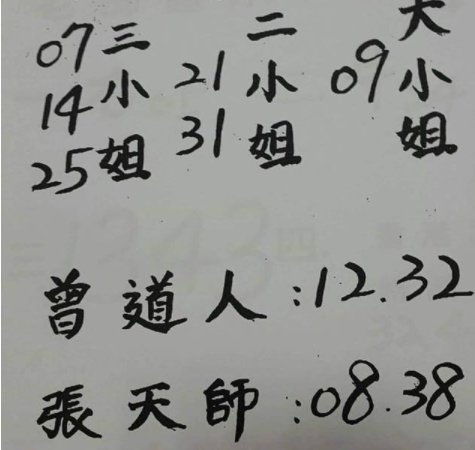 大小姐 09
二小姐 21 31
三小姐 07 14 25
曾道人:12.32
張天師:08.38